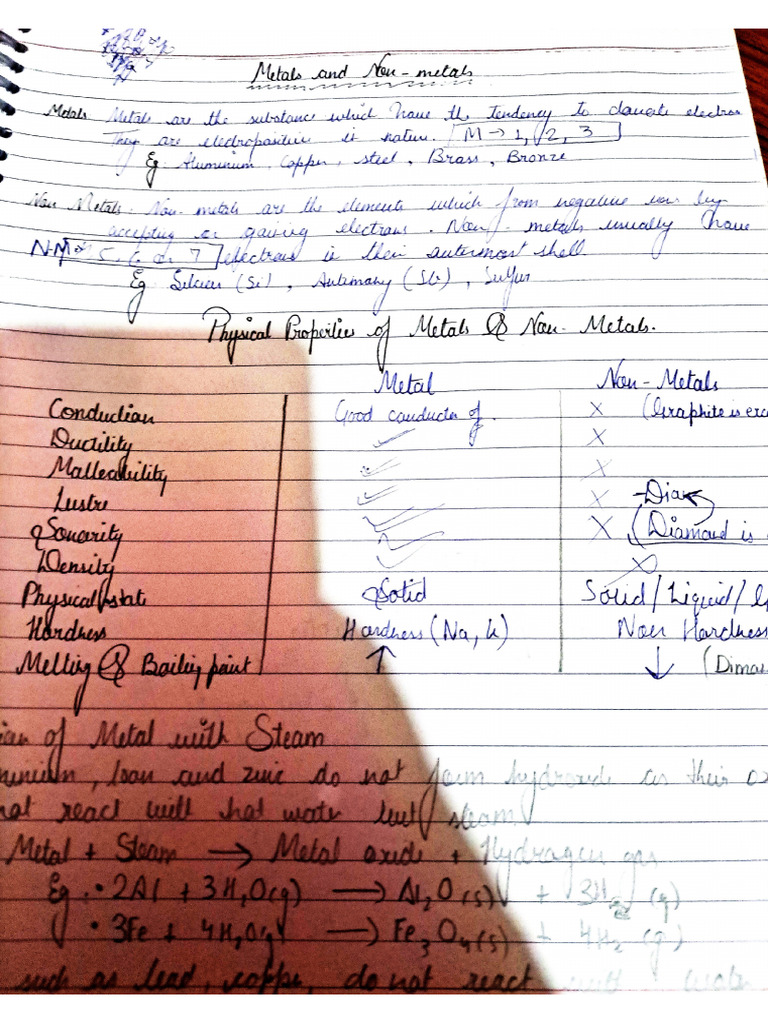 Metals and Non-metals
Metals Metals are the substance which have the tendency to donate electron
They are electropositive in nature. M → 1, 2, 3
Eg Aluminium, Copper, steel, Brass, Bronze
Non Metals. Non-metals are the elements which from negative ion by
accepting or gaining electrons. Non-metals usually have
N.M → 5, 6 or 7 electrons in their outermost shell
Eg Silicon (Si), Antimony (Sb), Sulfur
Physical Properties of Metals & Non-Metals.
Metal Non-Metals
Conduction Good conductor of. × (Graphite is
Ductility ✓ ×
Malleability ✓ ×
Lustre ✓ ×
Sonority ✓ × (Diamond is
Density ✓ ×
Physical state Solid Solid/Liquid/
Hardness Hardness (Na, K) Non Hardness
Melting & Boiling point ↑ ↓
of Metal with Steam
, Iron and zinc do not form hydroxide as their
not react with hot water but steam
Metal + Steam → Metal oxide + Hydrogen gas
Eg. • 2Al + 3H2O(g) → Al2O(s) + 3H2 (g)
• 3Fe + 4H2O(g) → Fe3O4(s) + 4H2 (g)
such as lead, copper, do not react with water